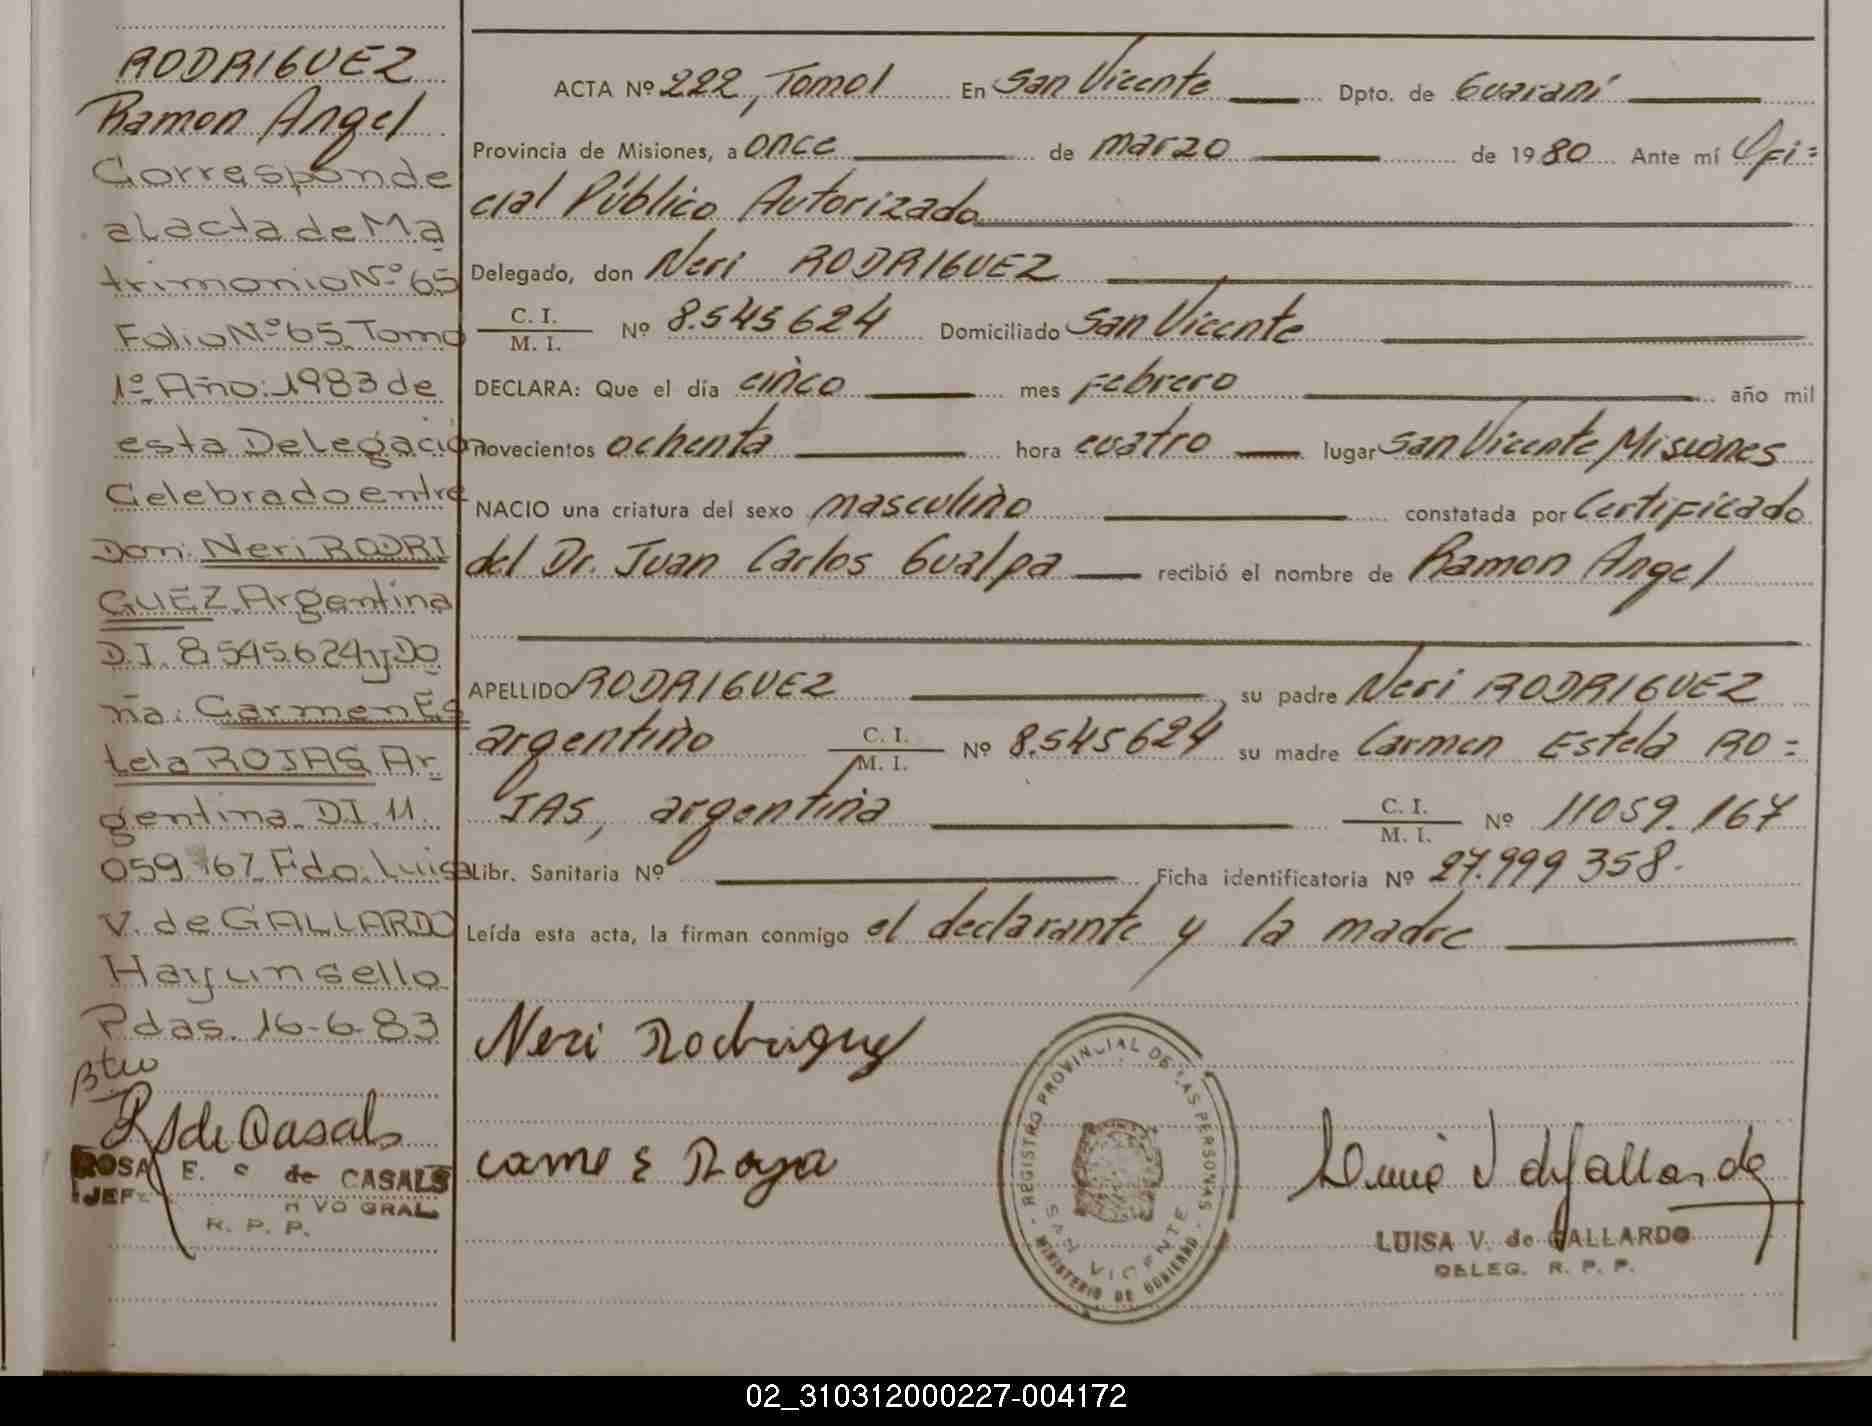 RODRIGUEZ
Ramon Angel
Corresponde
al acta de Ma
trimonio Nº 65
Folio Nº 65 Tomo
1º Año: 1983 de
esta Delegación
Celebrado entre
Don: Neri RODRI
GUEZ Argentina
D.I. 8545624 y Do
ña: Carmen Es
tela ROJAS Ar
gentina D.I. 11.
059.167 Fdo. Luisa
V. de GALLARDO
Hay un sello
Pdas. 16-6-83
R S de Casals
ROSA E. S de CASALS
JEF VO GRAL.
R. P. P.
ACTA Nº 222, Tomo 1 En San Vicente Dpto. de Guaraní
Provincia de Misiones, a once de marzo de 1980 Ante mí Ofi=
cial Público Autorizado
Delegado, don Neri RODRIGUEZ
C. I. / M. I. Nº 8.545624 Domiciliado San Vicente
DECLARA: Que el día cinco mes febrero año mil
novecientos ochenta hora cuatro lugar San Vicente Misiones
NACIO una criatura del sexo masculino constatada por Certificado
del Dr. Juan Carlos Gualpa recibió el nombre de Ramon Angel
APELLIDO RODRIGUEZ, su padre Neri RODRIGUEZ
argentino C. I. / M. I. Nº 8.545624 su madre Carmen Estela RO=
JAS, argentina C. I. / M. I. Nº 11059.167
Libr. Sanitaria Nº Ficha identificatoria Nº 27.999358.
Leída esta acta, la firman conmigo el declarante y la madre
Neri Rodriguez
REGISTRO PROVINCIAL DE LAS PERSONAS
SAN VICENTE
MINISTERIO DE GOBIERNO
Luisa V de Gallardo
LUISA V. de GALLARDO
DELEG. R. P. P.
02_310312000227-004172